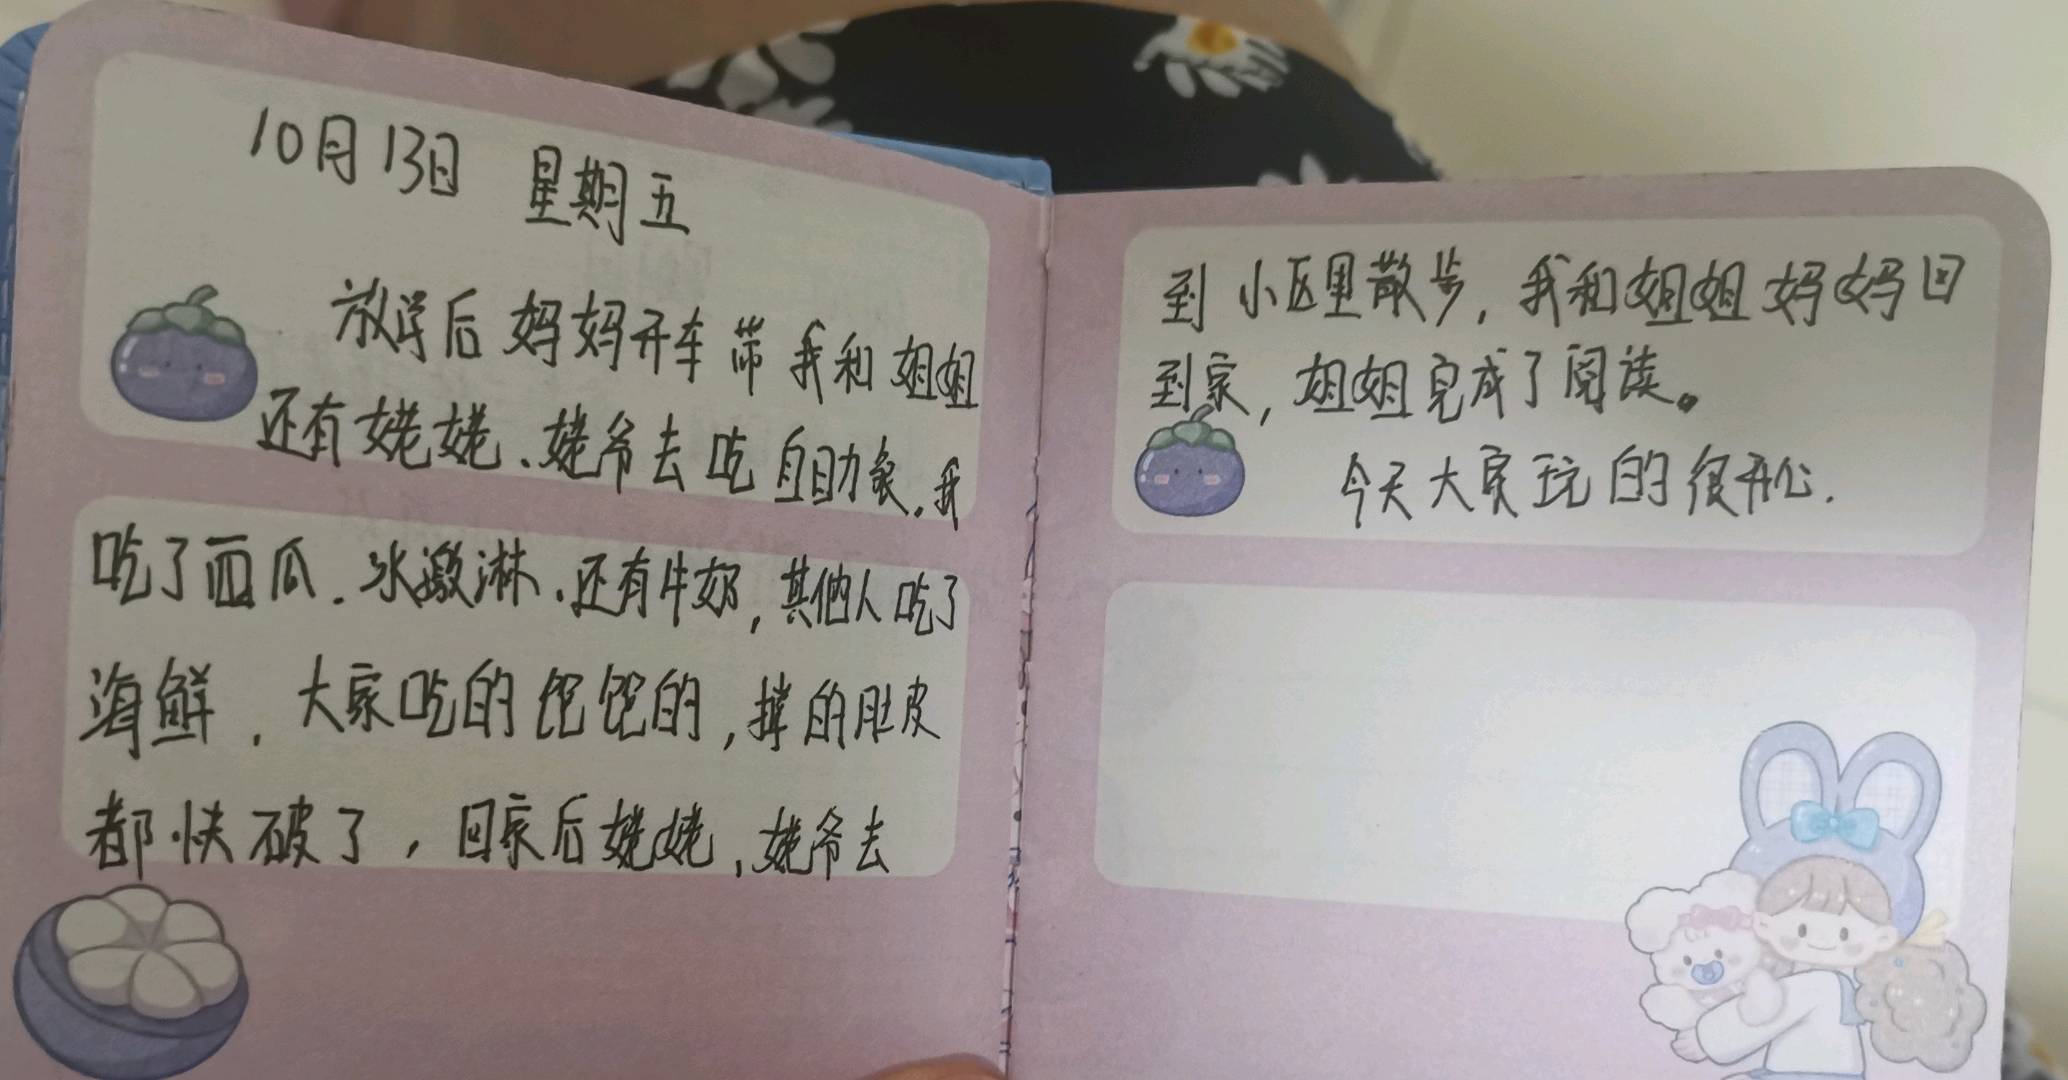 10月13日 星期五
放学后妈妈开车带我和姐姐
还有姥姥、姥爷去吃自助餐.我
吃了西瓜.冰激淋.还有牛奶,其他人吃了
海鲜.大家吃的饱饱的,撑的肚皮
都快破了,回家后姥姥,姥爷去
到小区里散步,我和姐姐妈妈回
到家,姐姐完成了阅读。
今天大家玩的很开心.